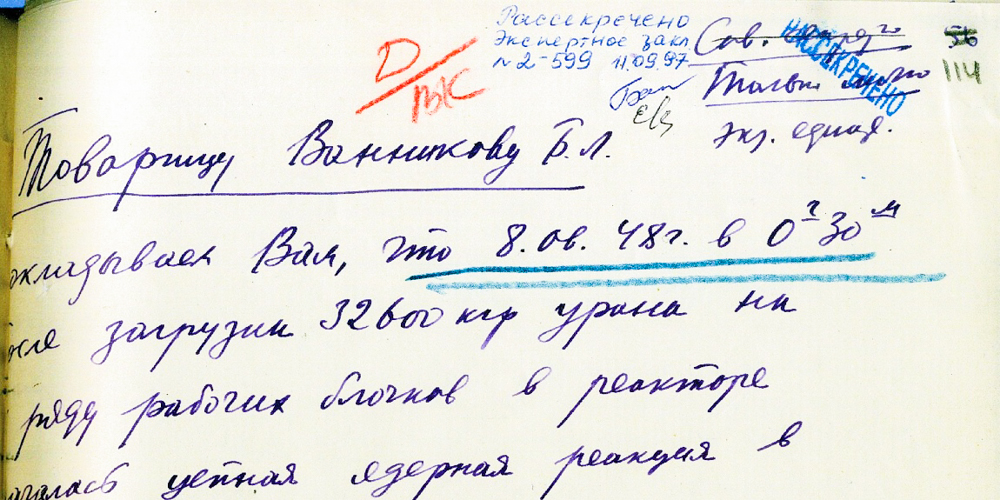 Рассекречено
Экспертное закл
№2-599 11.09.97
Сов. секретно
56
114
РАССЕКРЕЧЕНО
Только лично
экз. един.
D/ВК
Товарищу Ванникову Б.Л.
окладываем Вам, что 8.06.48г. в 0ч30м
осле загрузки 32600 кгр урана на
ряду рабочих блочков в реакторе
ачалась цепная ядерная реакция в